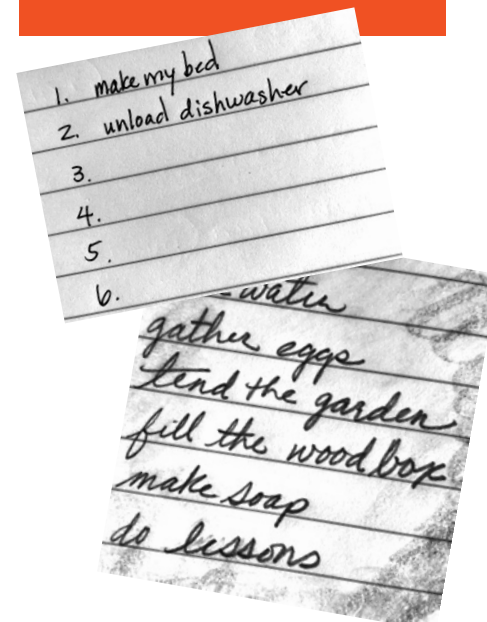 1. make my bed
2. unload dishwasher
3.
4.
5.
6.
water
gather eggs
tend the garden
fill the woodbox
make soap
do lessons